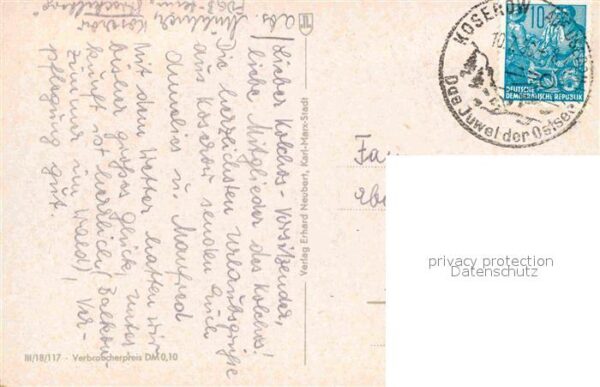 Abs/
Koserow
Lieber Kolchos-Vorsitzender,
liebe Mitglieder des Kolchos!
Die herzlichsten Urlaubsgrüße
aus Koserow senden Euch
Annelies u. Manfred
Mit dem Wetter hatten wir
bisher großes Glück, unter
kunft ist herrlich (Balkon-
zimmer im Wald), Ver-
pflegung gut.
Verlag Erhard Neubert, Karl-Marx-Stadt
III/18/117 - Verbraucherpreis DM 0,10
KOSEROW
Das Juwel der Ostsee
10
DEUTSCHE
DEMOKRATISCHE REPUBLIK
Fa
privacy protection
Datenschutz